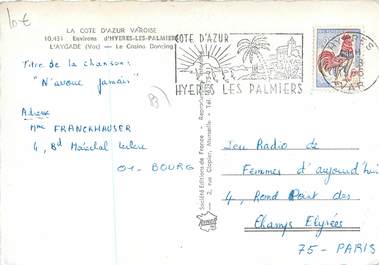 10€
LA COTE D'AZUR VAROISE
10.431 Environs d'HYERES-LES-PALMIERS
L'AYGADE (Var) — Le Casino Dancing
Titre de la chanson:
"N'avoue jamais"
Adresse
Mme FRANCKHAUSER
4, Bd Maréchal Leclerc
01 - BOURG
COTE D'AZUR
HYERES LES PALMIERS
HYERES
VAR
Société Editions de France - Reprod
2, rue Clapier, Marseille - Tél.
Jeu Radio de
Femmes d'aujourd'hui
4, Rond Point des
Champs Elysées
75 - PARIS